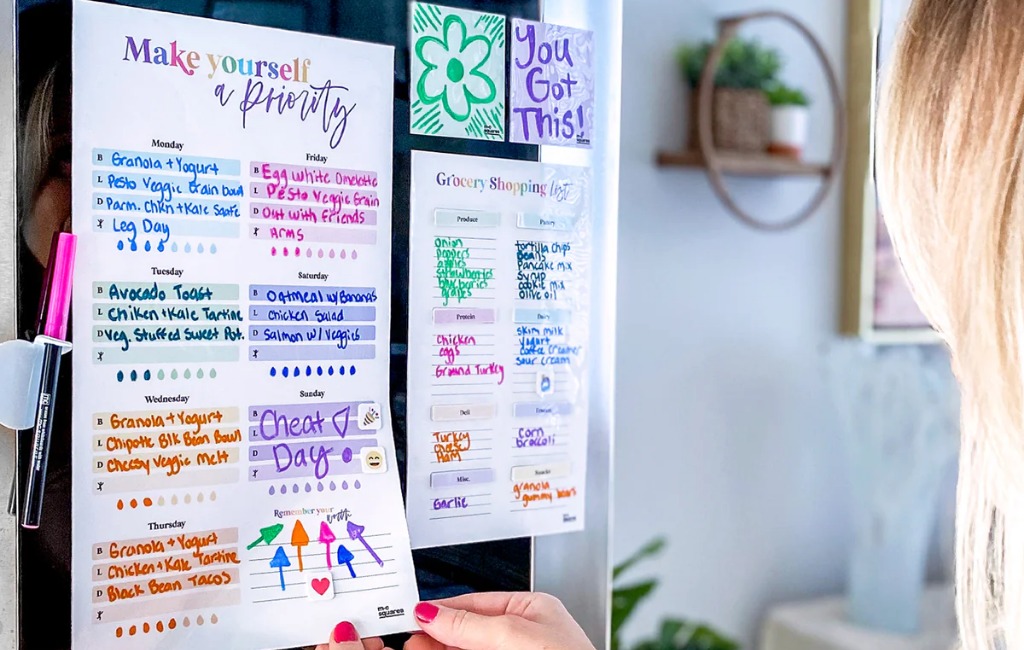 Make yourself
a Priority
Monday
B Granola + Yogurt
L Pesto Veggie Grain bowl
D Parm. Chkn + Kale
Leg Day
Tuesday
B Avocado Toast
L Chiken + Kale Tartine
D Veg. Stuffed Sweet Pot.
Wednesday
B Granola + Yogurt
L Chipotle Blk Bean Bowl
D Cheesy Veggie Melt
Thursday
B Granola + Yogurt
L Chicken + Kale Tartine
D Black Bean Tacos
Friday
B Egg White Omelette
L Pesto Veggie Grain
D Out with Friends
Arms
Saturday
B Oatmeal w/Bananas
L Chicken Salad
D Salmon w/ Veggies
Sunday
B Cheat
L
D Day
Remember your
worth
m.c
squares
You
Got
This!
m.c
squares
Grocery Shopping list
Produce
onion
peppers
apples
strawberries
blueberries
grapes
Pantry
tortilla chips
beans
Pancake mix
syrup
cookie mix
olive oil
Protein
Chicken
eggs
Ground Turkey
Dairy
skim milk
yogurt
coffee creamer
sour cream
Deli
Turkey
Cheese
Ham
Frozen
corn
broccoli
Misc.
Garlic
Snacks
granola
gummy bears